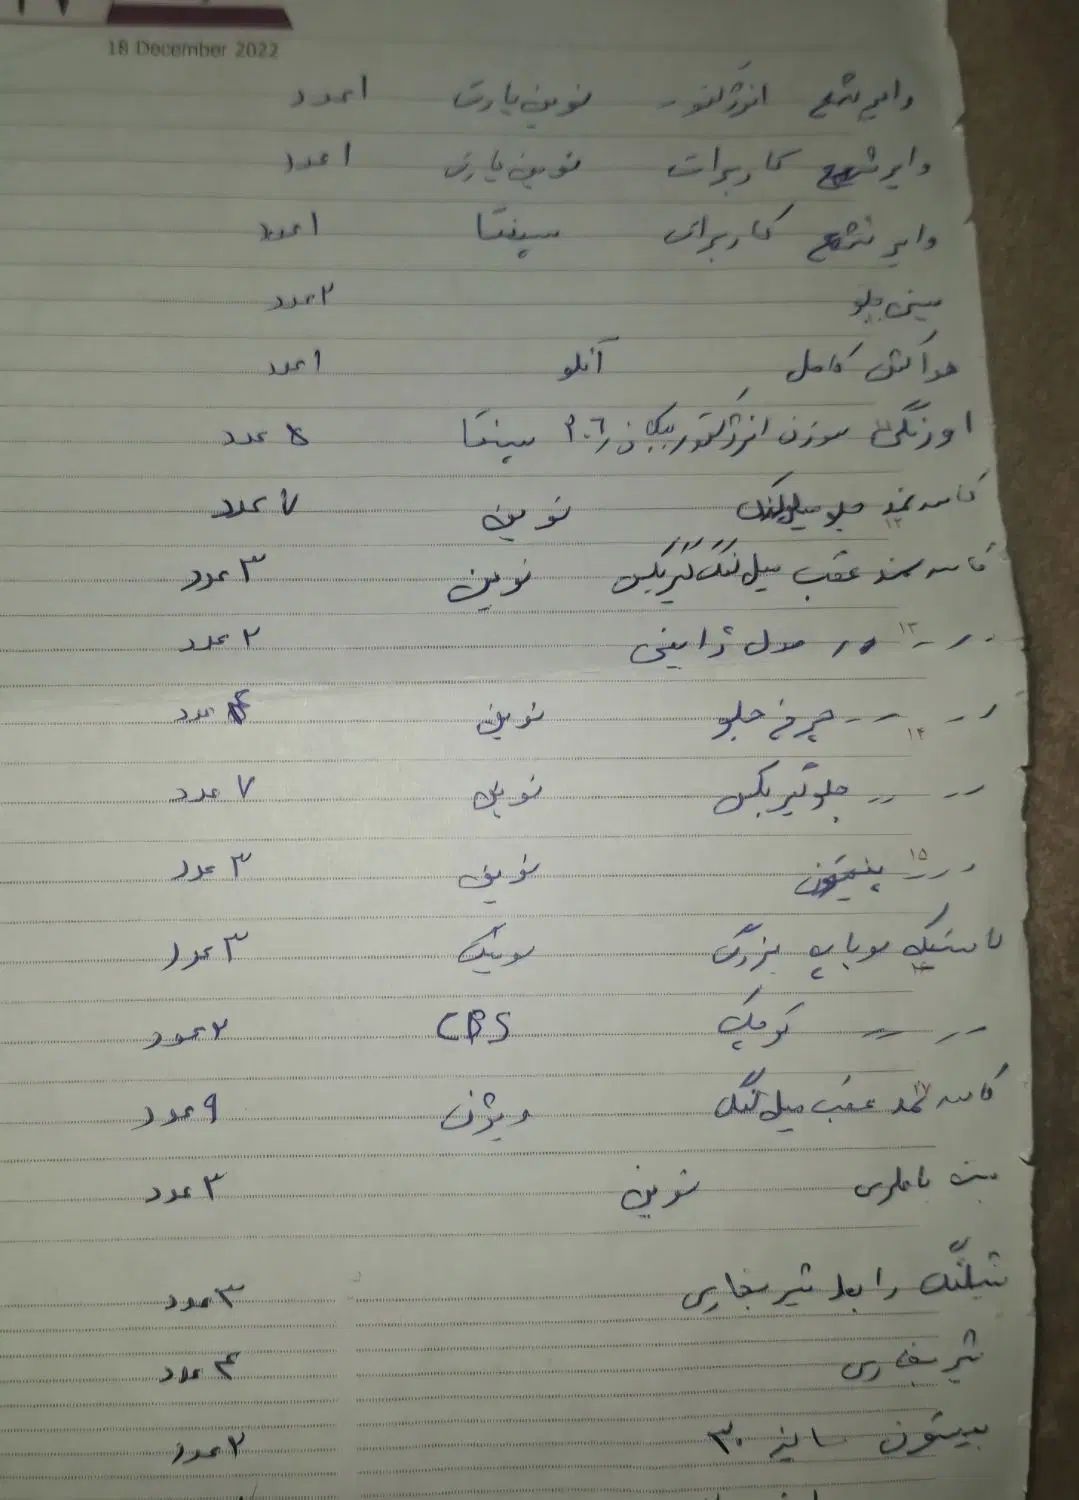 18 December 2022
وایر شمع انژکتور نوین پارت ۱ عدد
وایر شمع کاربرات نوین پارت ۱ عدد
وایر شمع کاربرات سینتا ۱ عدد
سینی جلو ۲ عدد
هواکش کامل آنلو ۱ عدد
اورینگ سوزن انژکتور پیکان ر ۲۰۶ سینتا ۵ عدد
کاسه نمد جلو میل لنگ نوین ۷ عدد
کاسه نمد عقب میل لنگ گیربکس نوین ۳ عدد
۱۳ مدل ژاپنی ۲ عدد
۱۴ چرخ جلو نوین ۴ عدد
جلو گیربکس نوین ۷ عدد
۱۵ پینیون نوین ۳ عدد
لاستیک سوپاپ بزرگ سوپیک ۳ عدد
کوچک CBS ۲ عدد
کاسه نمد عقب میل لنگ ۱۷ ویژن ۹ عدد
بست باطری نوین ۳ عدد
شیلنگ رابط شیر بخاری ۳ عدد
شیر بخاری ۴ عدد
پیستون سایز ۳۰ ۲ عدد